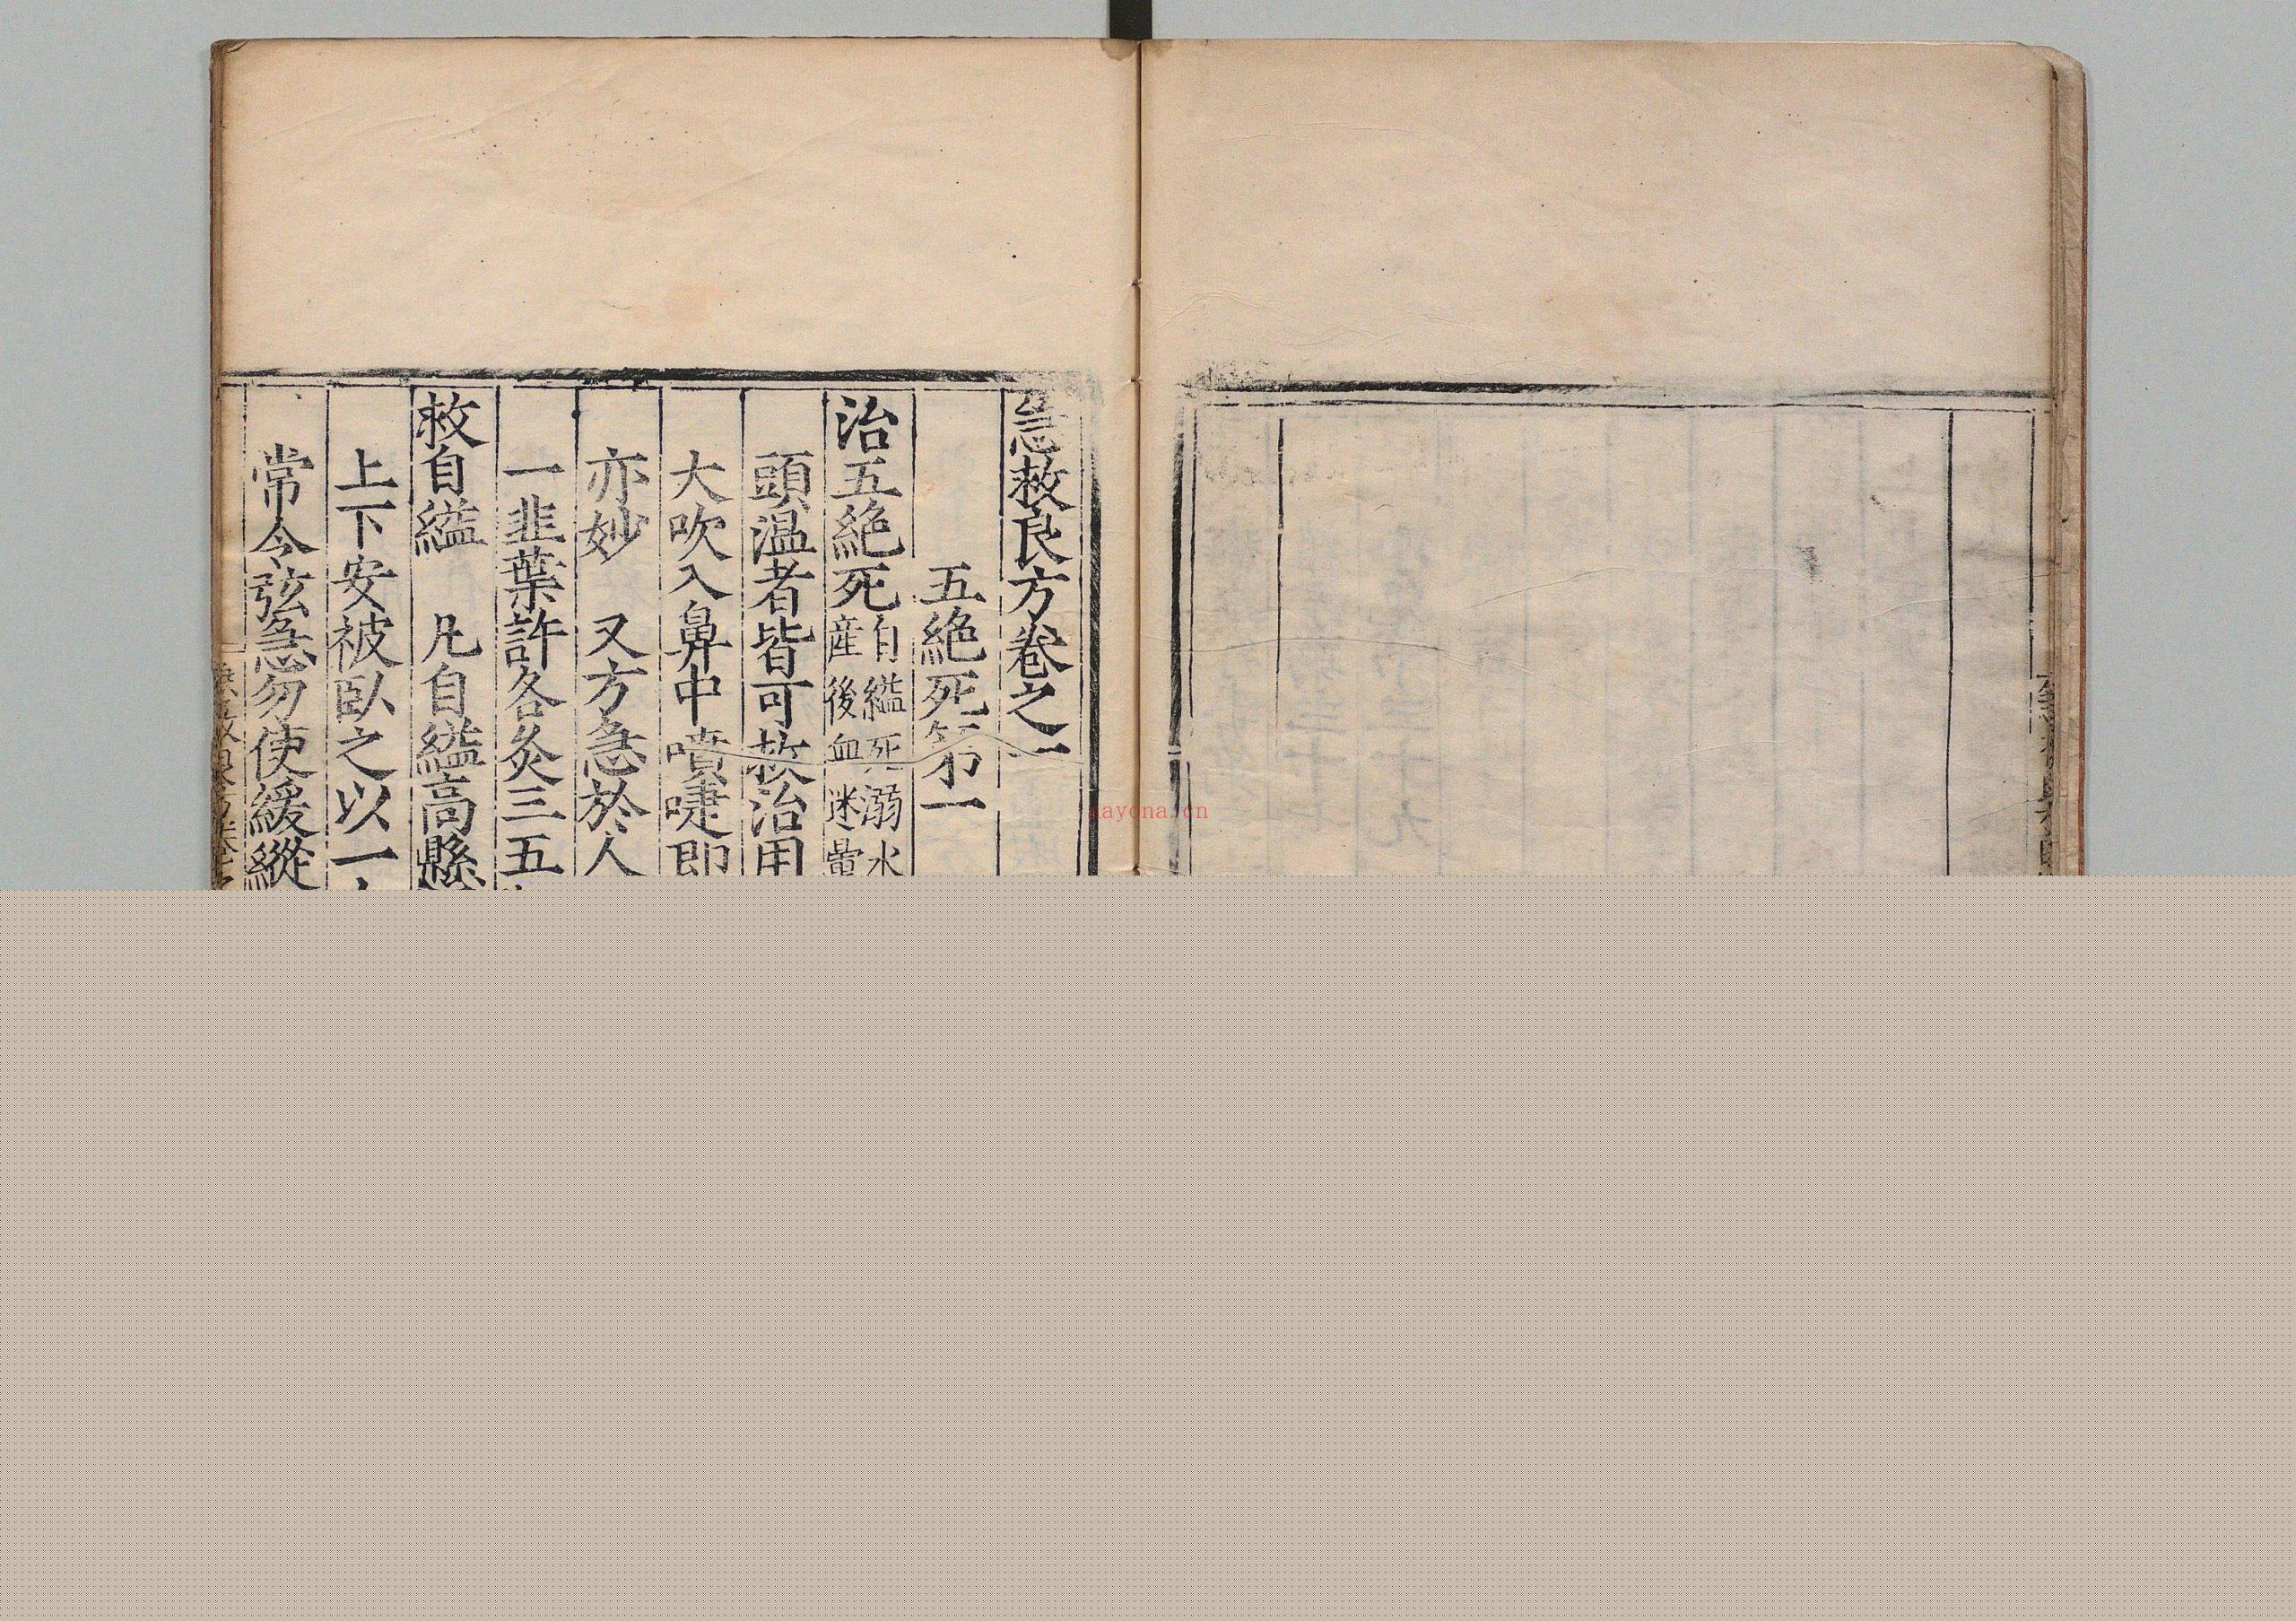 急救良方卷之一
五絶死第一
治五絶死自縊死溺水産後血迷暈
頭温者皆可救治用
大吹入鼻中噴嚏即
亦妙　又方急於人
一韭葉許各灸三五
救自縊　凡自縊高懸
上下安被臥之以一
常令弦急勿使緩縱